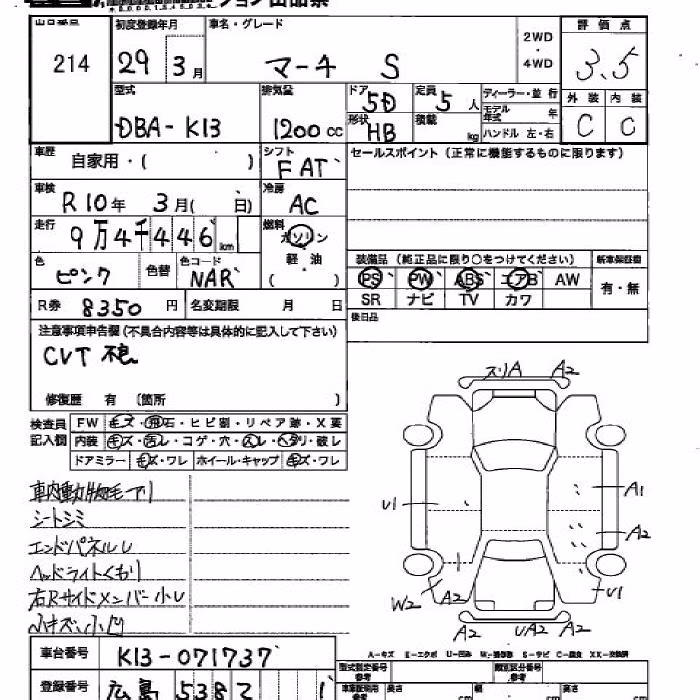 出品番号 初度登録年月 車名・グレード 2WD・4WD 評価点
214 29年 3月 マーチ S 3.5
型式 排気量 ドア 5D 定員 5人 ディーラー・並行 外装 内装
DBA-K13 1200cc 形状 HB 積載 kg モデル年式 年 C C
ハンドル 左・右
車歴 自家用・( ) シフト FAT セールスポイント(正常に機能するものに限ります)
車検 R10年 3月( 日) 冷房 AC
走行 9万4千446km 燃料 ガソリン
軽油
装備品(純正品に限り○をつけてください) 新車保証書
色 ピンク 色替 色コード NAR PS PW ABS エアB AW 有・無
SR ナビ TV カワ
R券 8350円 名変期限 月 日
後日品
注意事項申告欄(不具合内容等は具体的に記入して下さい)
CVT
修復歴 有 (箇所 )
検査員記入欄 FW キズ・飛石・ヒビ割・リペア跡・X要
内装 キズ・汚レ・コゲ・穴・スレ・ヘタリ・破レ
ドアミラー キズ・ワレ ホイール・キャップ キズ・ワレ
スリA A2
A1
U1
A2
W2 A2 A2 U1
A2 UA2 A2
車内動物毛アリ
シートシミ
エンドパネルU
ヘッドライトくもり
右Rサイドメンバー小U
小キズ、小凹
A-キズ E-エクボ U-凹み W-補修跡 S-サビ C-腐食 XX-交換済
車台番号 K13-071737
型式指定番号 参考 類別区分番号 参考
登録番号 広島 538
長さ cm 幅 cm 高さ cm